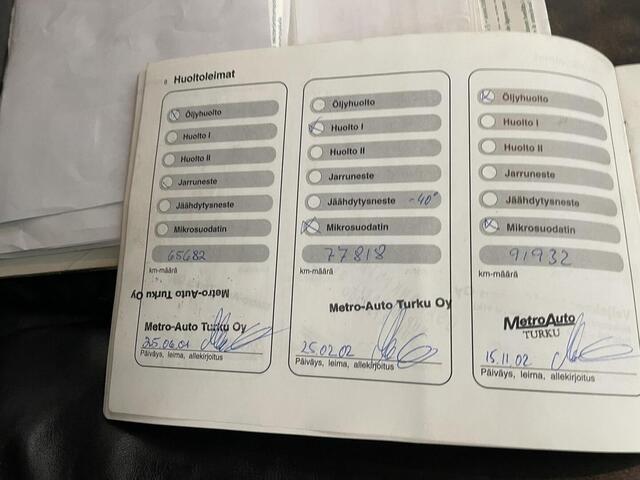 8 Huoltoleimat
Öljyhuolto
Huolto I
Huolto II
Jarruneste
Jäähdytysneste
Mikrosuodatin
65682
km-määrä
Metro-Auto Turku Oy
Metro-Auto Turku Oy
25.06.01
Päiväys, leima, allekirjoitus
Öljyhuolto
Huolto I
Huolto II
Jarruneste
Jäähdytysneste -40°
Mikrosuodatin
77818
km-määrä
Metro-Auto Turku Oy
25.02.02
Päiväys, leima, allekirjoitus
Öljyhuolto
Huolto I
Huolto II
Jarruneste
Jäähdytysneste
Mikrosuodatin
91932
km-määrä
MetroAuto
TURKU
15.11.02
Päiväys, leima, allekirjoitus